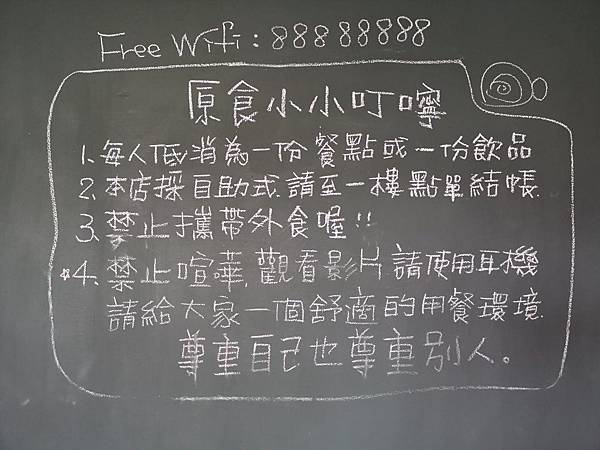 Free Wifi : 88888888
原食小小叮嚀
1、每人低消為一份餐點或一份飲品
2、本店採自助式.請至一樓點單結帳.
3、禁止攜帶外食喔!!
*4、禁止喧嘩.觀看影片請使用耳機
請給大家一個舒適的用餐環境.
尊重自己也尊重別人。